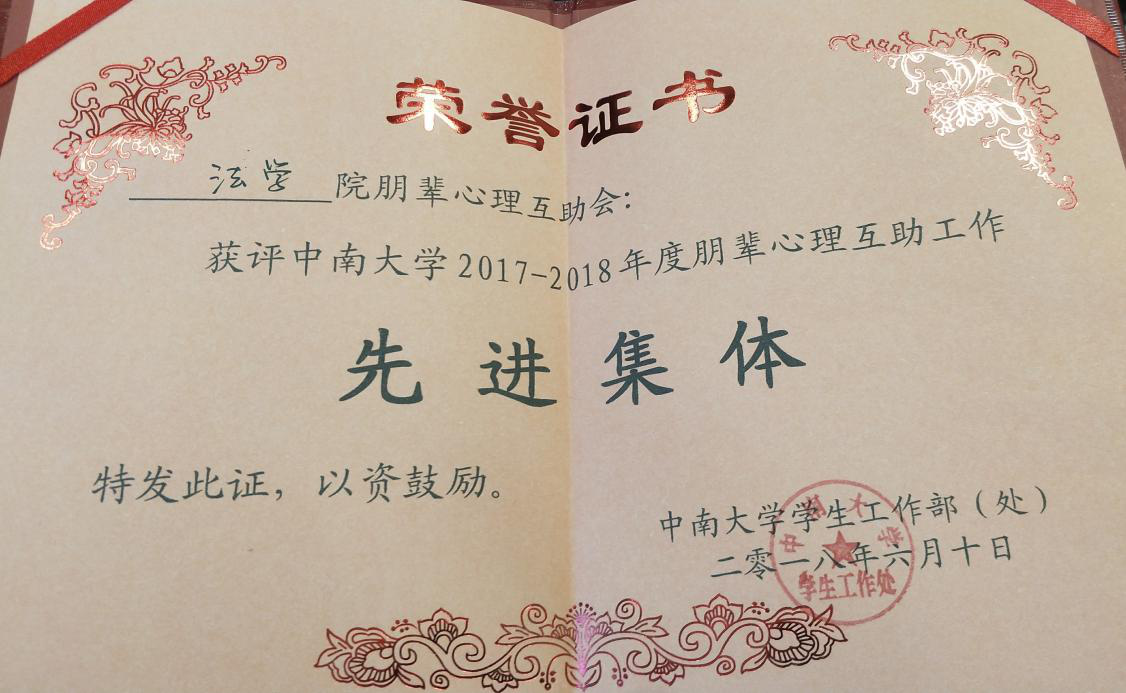 荣誉证书
法学院朋辈心理互助会:
获评中南大学2017-2018年度朋辈心理互助工作
先进集体
特发此证，以资鼓励。
中南大学学生工作部（处）
二零一八年六月十日
中南大学
学生工作处